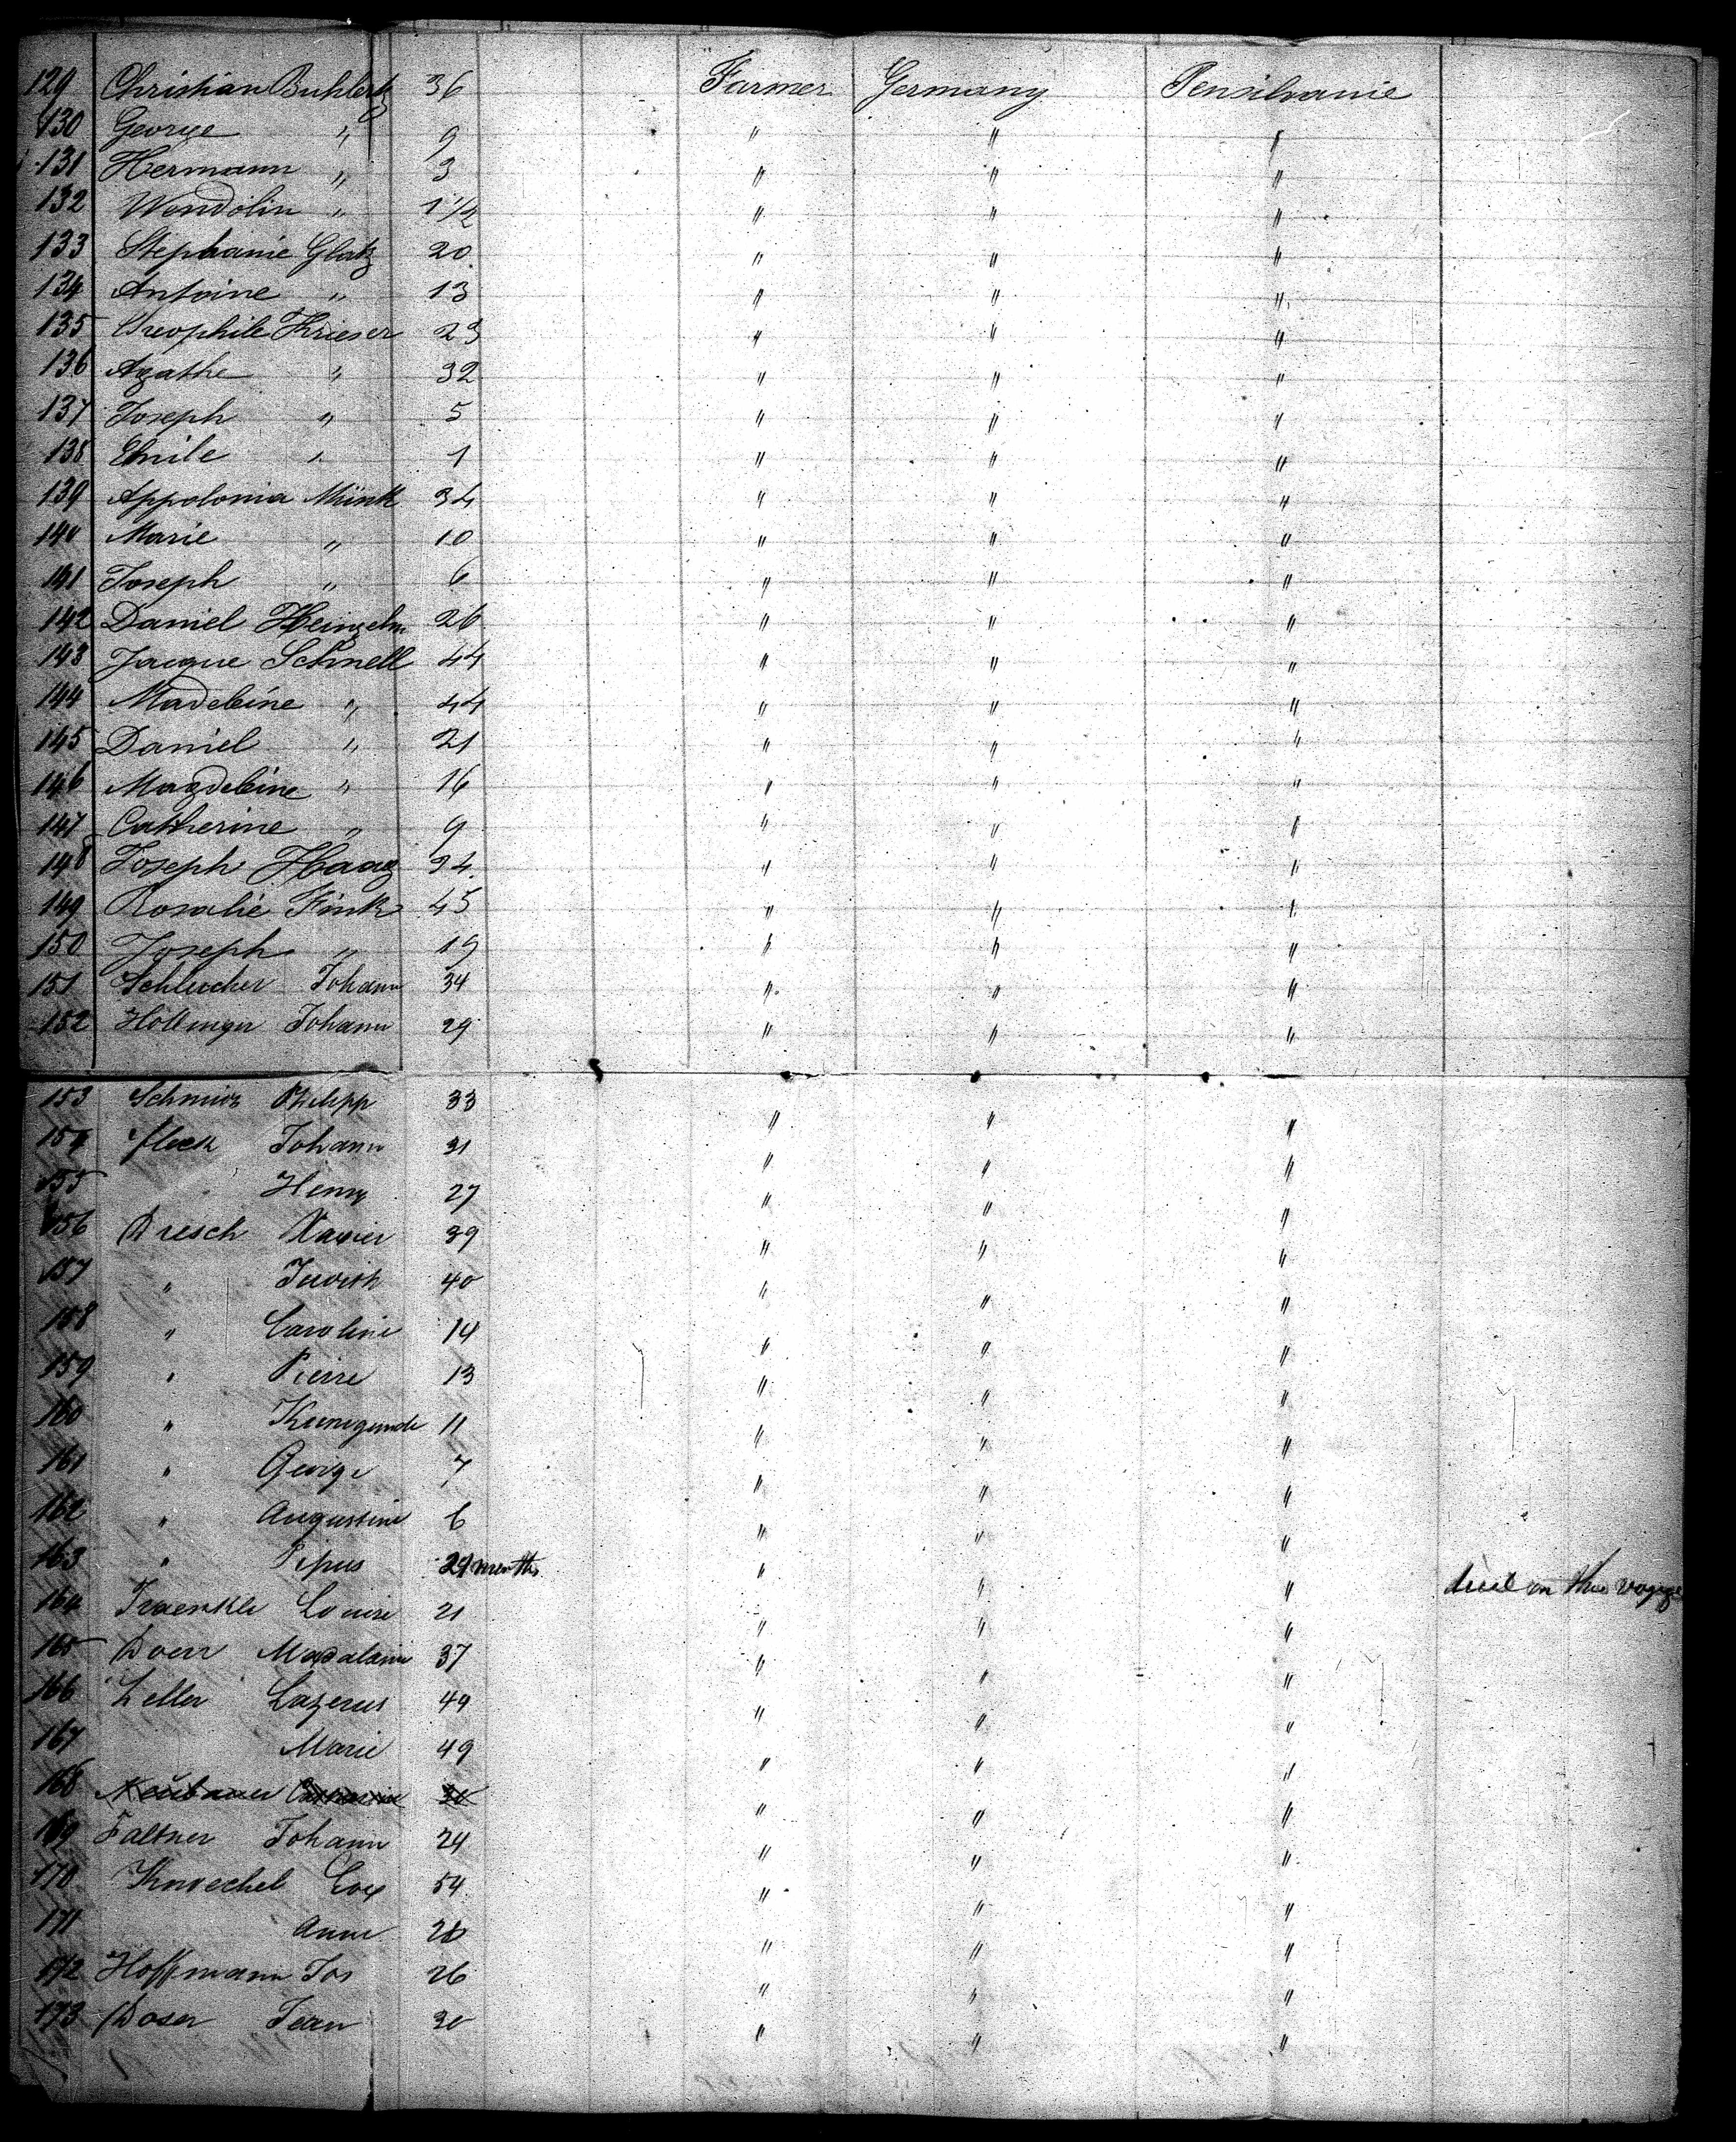 129 Christian Buhlertz 36 Farmer Germany Pensilvanie
130 George " 9 " " "
131 Hermann " 3 " " "
132 Wendolin " 1 1/2 " " "
133 Stephanie Glatz 20 " " "
134 Antoine " 13 " " "
135 Krieser 23 " " "
136 Agathe " 32 " " "
137 Joseph " 5 " " "
138 Emile " 1 " " "
139 Appolonia Münk 34 " " "
140 Marie " 10 " " "
141 Joseph " 6 " " "
142 Daniel Heinzelm 26 " " "
143 Jacque Schnell 44 " " "
144 Madeleine " 44 " " "
145 Daniel " 21 " " "
146 Magdeleine " 16 " " "
147 Catherine " 9 " " "
148 Joseph Haag 34 " " "
149 Rosalie Fink 45 " " "
150 Joseph " 19 " " "
151 Schleicher Johann 34 " " "
152 Hollinger Johann 29 " " "
153 Philipp 33 " " "
154 Fleck Johann 31 " " "
155 Henry 27 " " "
156 Dresch Xavier 39 " " "
157 " 40 " " "
158 " Caroline 14 " " "
159 " Pierre 13 " " "
160 " Kunegunde 11 " " "
161 " George 7 " " "
162 " Augustine 6 " " "
163 " 29 months " " " died on the voyage
164 Traenkle Louise 21 " " "
165 Doerr Madalaine 37 " " "
166 Zeller Lazerus 49 " " "
167 Marie 49 " " "
168 " " "
169 Faltner Johann 24 " " "
170 Knoechel 54 " " "
171 Anne 28 " " "
172 Hoffmann Jos 26 " " "
173 Doser Jean 30 " " "